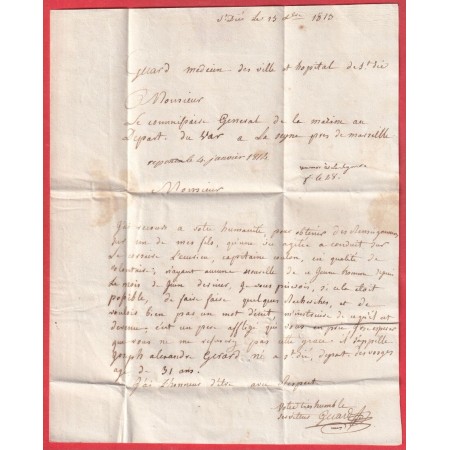 St Dié le 13 Xbre 1813
Gérard médecin des ville et hopital de St Dié
A Monsieur
Le commissaire General de la marine au
Depart. du Var a La Seyne près de marseille
repondu le 4 janvier 1814
Monsieur
J'ai recours a votre humanité pour obtenir des Renseignemens
sur un de mes fils, qu'une vie agitée a conduit sur
Le corsaire capitaine en qualité de
volontaire, n'ayant aucune nouvelle de ce Jeune homme depuis
Le mois de Juin dernier, Je vous prierois, si cela étoit
possible, de faire faire quelques Recherches, et de
vouloir bien par un mot d'écrit, m'instruire de ce qu'il est
devenu. c'est un père affligé qui
que vous ne me refuserez pas cette grace. il s'appelle
Joseph alexandre Gérard né a St dié, depart. des vosges
agé de 31 ans.
J'ai L'honneur d'être avec Respect
Votre très humble
serviteur Gérard